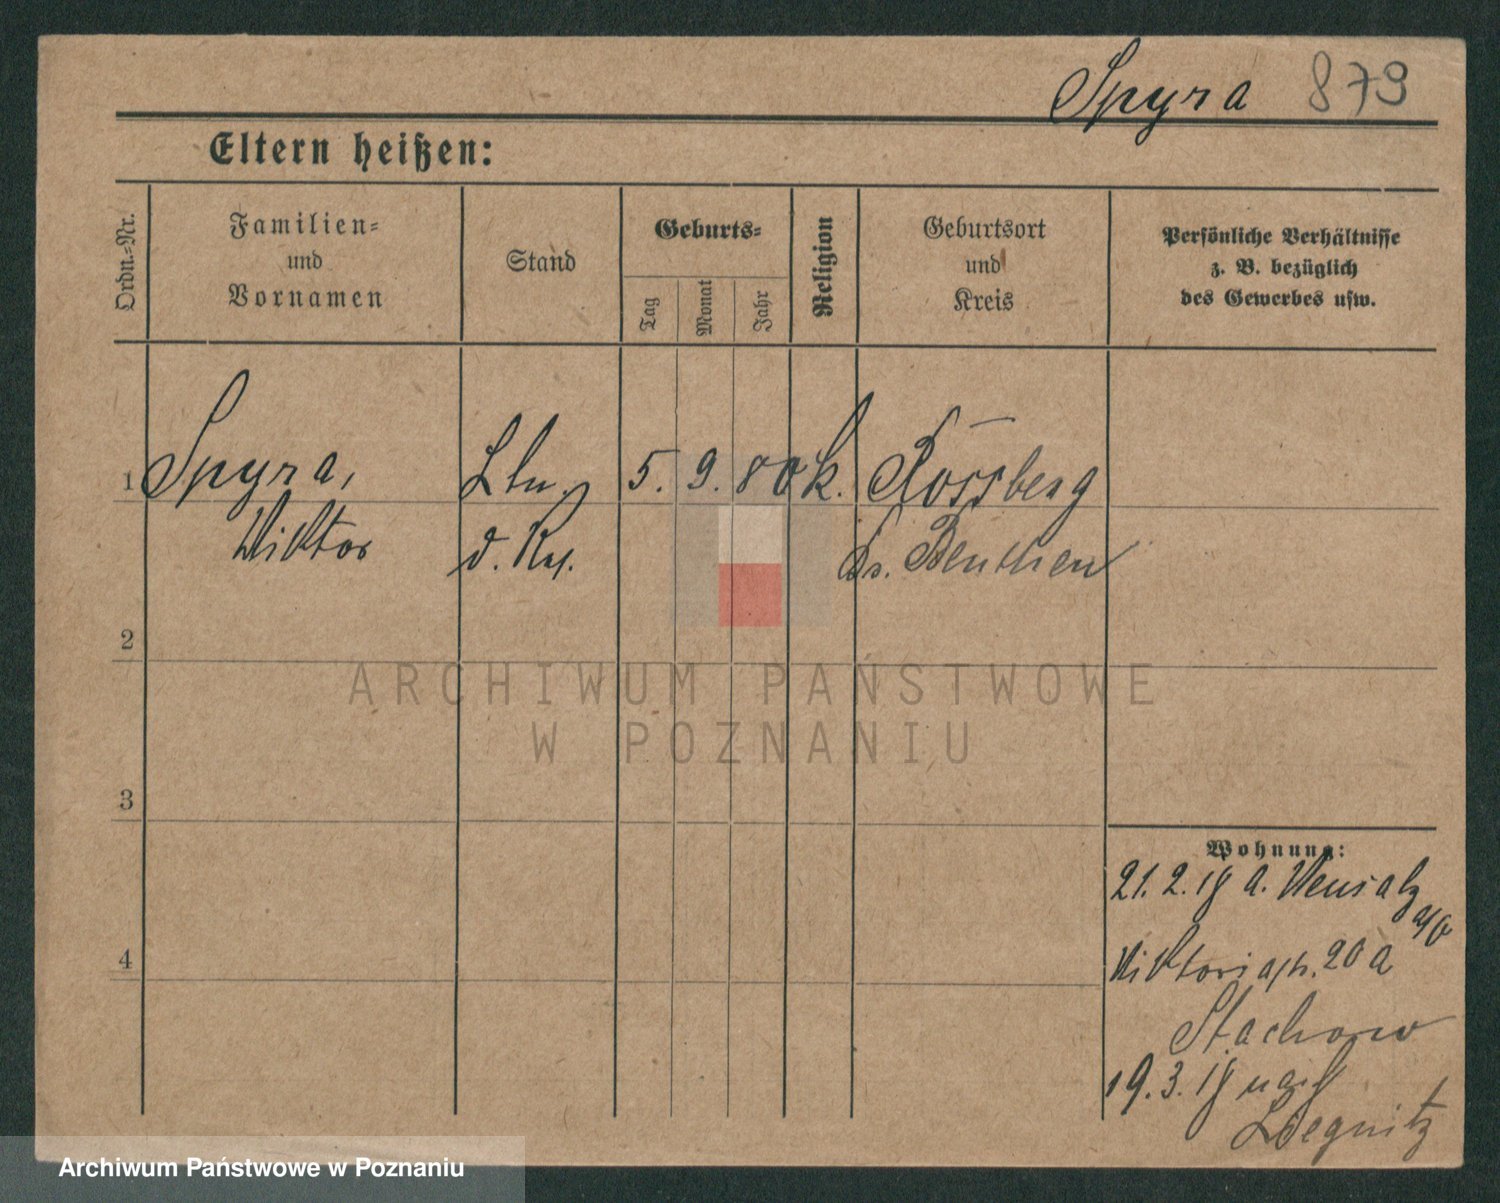 Spyra 879
Eltern heißen:
Ordn.-Nr.
Familien-
und
Vornamen
Stand
Geburts-
Tag
Monat
Jahr
Religion
Geburtsort
und
Kreis
Persönliche Verhältnisse
z. B. bezüglich
des Gewerbes usw.
1 Spyra, Ltn. 5. 9. 80 k. Rossberg
Viktor d. Res. Kr. Beuthen
2
3
4
Wohnung:
21. 2. 18 a. Neusalz
a/O
Viktoriastr. 20 a
Stachow
19. 3. 18 nach
Liegnitz
ARCHIWUM PAŃSTWOWE
W POZNANIU
Archiwum Państwowe w Poznaniu